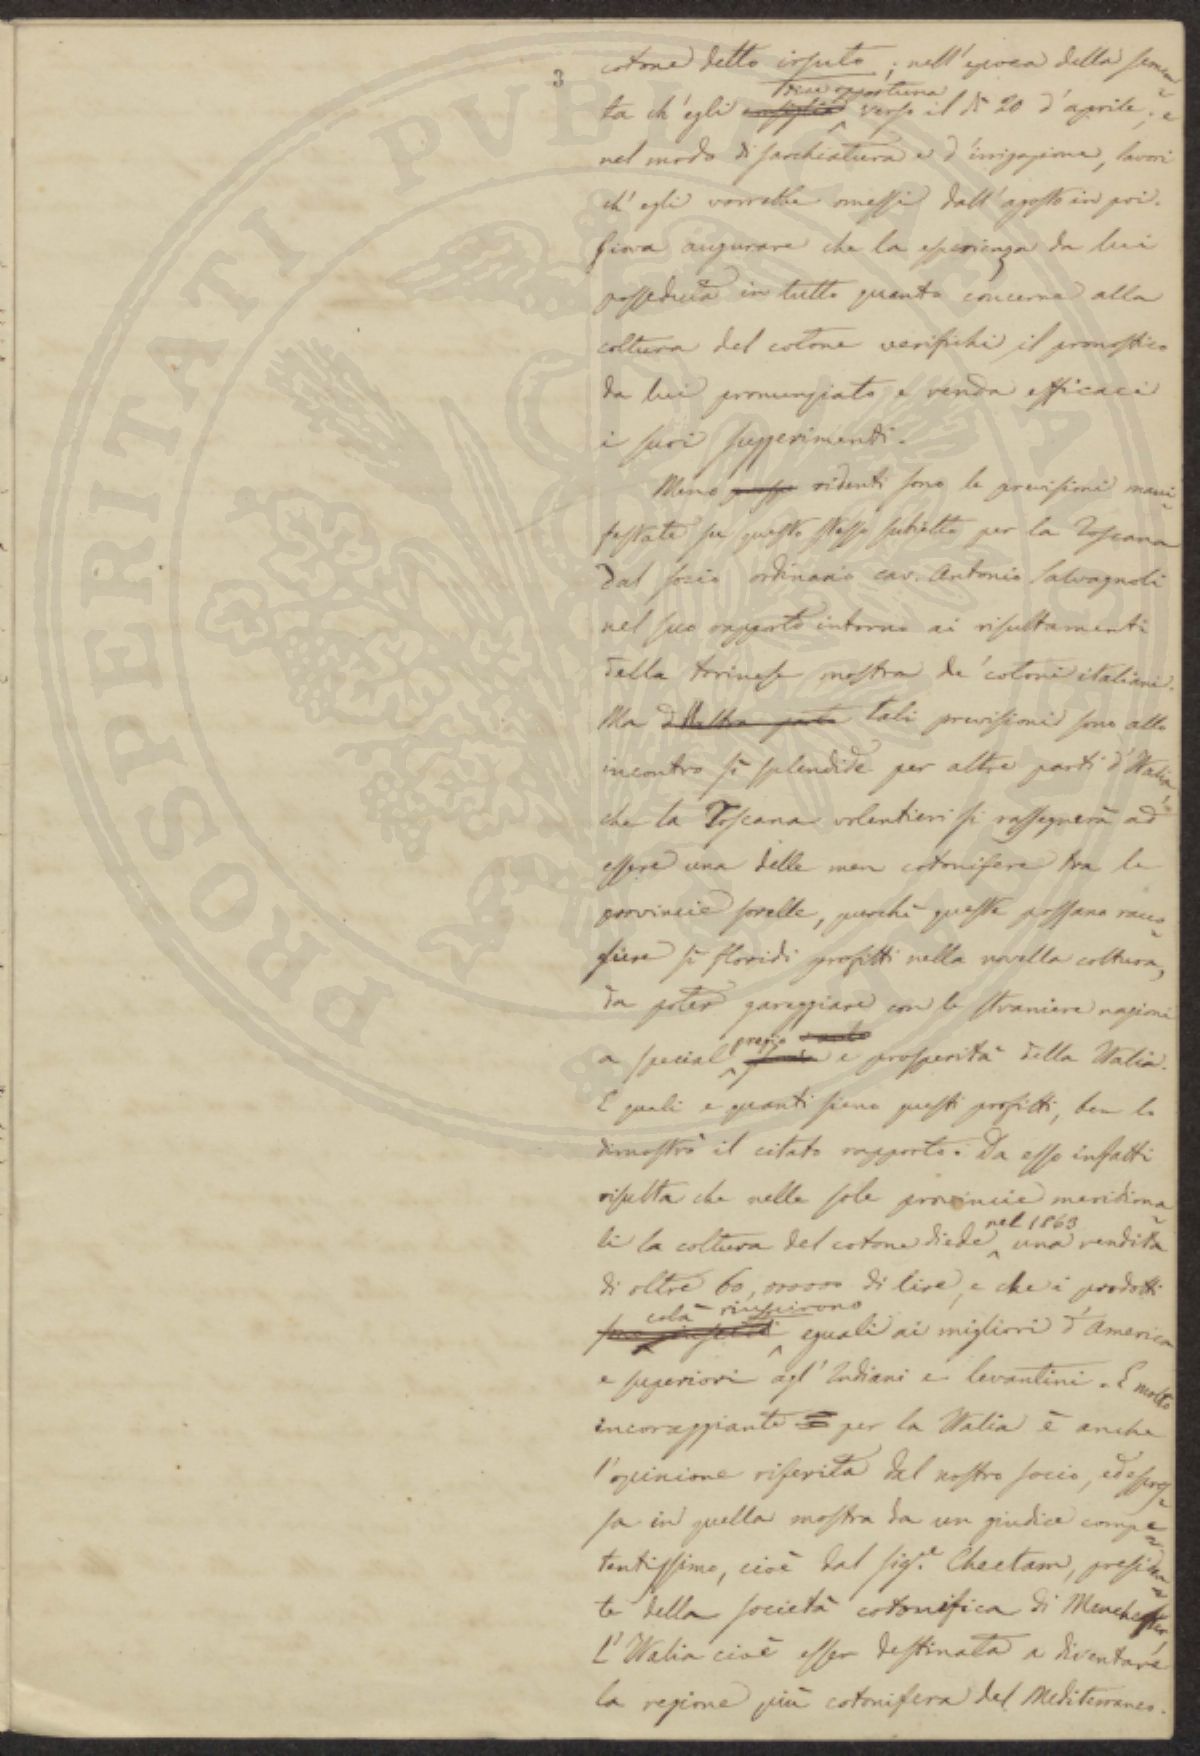 3
cotone detto irsuto; nell'epoca della semen
ta ch'egli dice opportuna verso il dì 20 d'aprile; e
nel modo di sarchiatura e d'irrigazione, lavori
ch'egli vorrebbe omessi dall'agosto in poi.
Giova augurare che la esperienza da lui
posseduta in tutto quanto concerne alla
coltura del cotone verifichi il pronostico
da lui pronunziato e renda efficaci
i suoi suggerimenti.
Meno ridenti sono le previsioni mani
festate su questo stesso subietto per la Toscana
dal socio ordinario cav. Antonio Salvagnoli
nel suo rapporto intorno ai risultamenti
della torinese mostra de' cotoni italiani.
Ma tali previsioni sono allo
incontro sì splendide per altre parti d'Italia,
che la Toscana volentieri si rassegnerà ad
essere una delle men cotonifere tra le
provincie sorelle, purchè queste possano racco
gliere sì floridi profitti nella novella coltura,
da poter gareggiare con le straniere nazioni
a special pregio e prosperità della Italia.
E quali e quanti sieno questi profitti, ben lo
dimostrò il citato rapporto. Da esso infatti
risulta che nelle sole provincie meridiona
li la coltura del cotone diede nel 1863 una rendita
di oltre 60,000000 di lire, e che i prodotti
colà riuscirono eguali ai migliori d'America
e superiori agl'Indiani e levantini. E molto
incoraggiante per la Italia è anche
l'opinione riferita dal nostro socio, ed espres
sa in quella mostra da un giudice compe
tentissimo, cioè dal sig.e Cheetam, presiden
te della società cotonifica di Manchester,
L'Italia cioè esser destinata a diventare
la regione più cotonifera del Mediterraneo.
PROSPERITATI PUBLICAE AUGENDAE